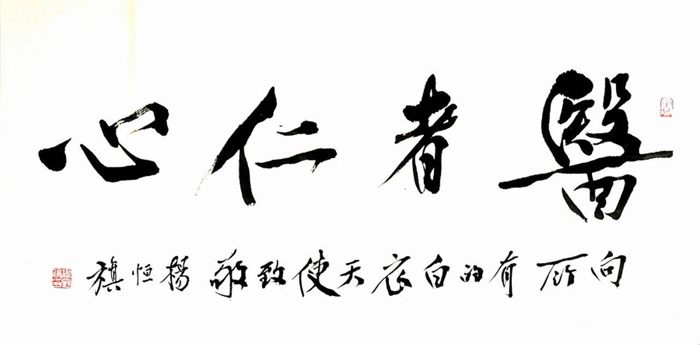 醫者仁心
向所有的白衣天使致敬 楊恒旗